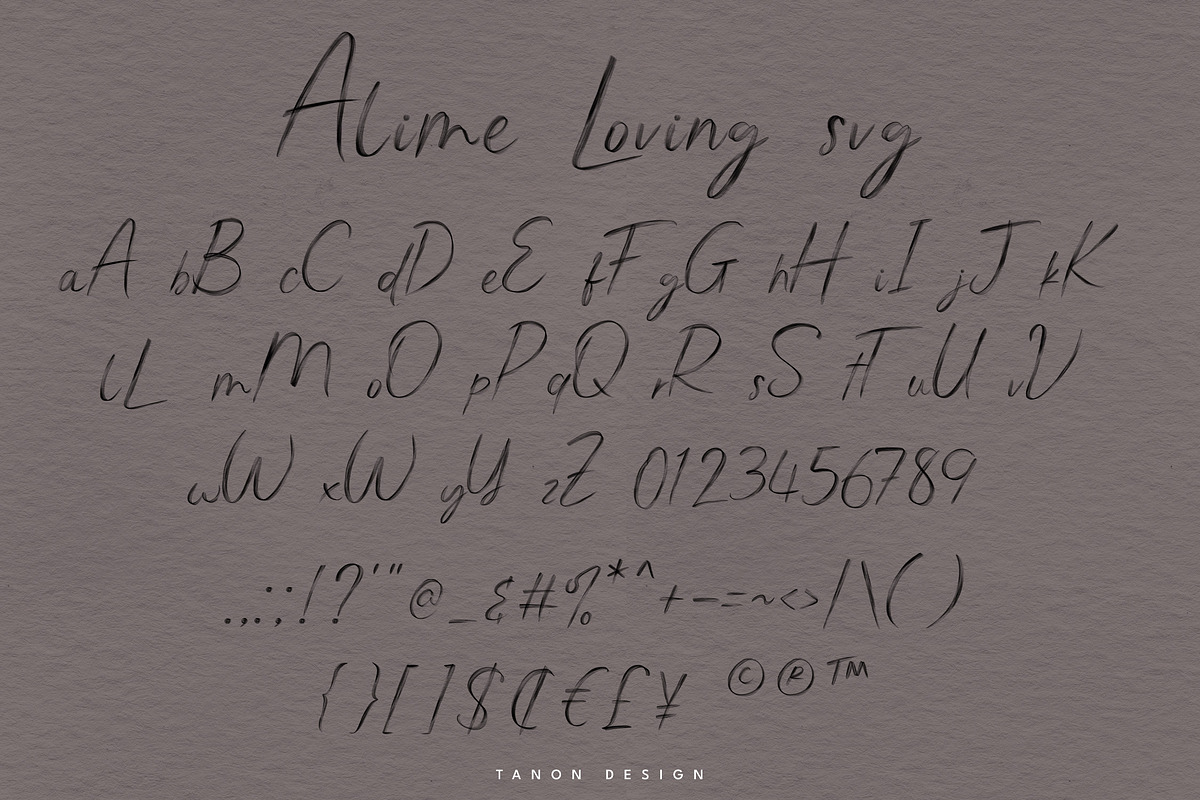 Alime Loving svg
aA bB cC dD eE fF gG hH iI jJ kK
lL mM oO pP qQ rR sS tT uU vV
wW xW yY zZ 0123456789
.,..:;!?'"@_&#%*^+-=~<>/|\( )
{}[]$₡€£¥ ©®™
TANON DESIGN